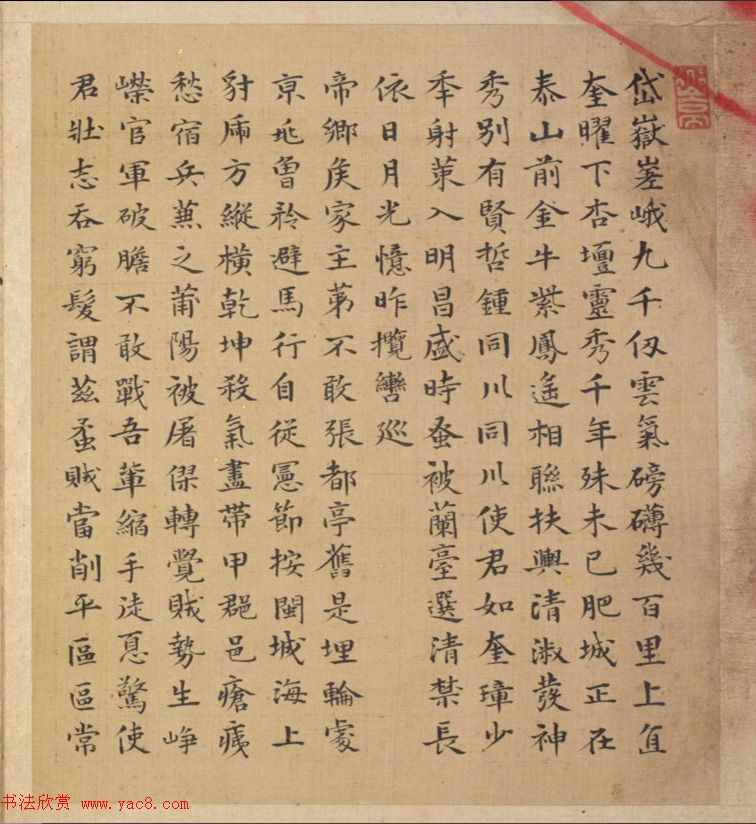 岱嶽嵳峨九千仞雲氣磅礴幾百里上直
奎曜下杏壇靈秀千年殊未已肥城正在
泰山前金牛紫鳳遙相聯扶輿清淑發神
秀別有賢哲鍾同川同川使君如奎璋少
年射策入明昌盛時蚤被蘭臺選清禁長
依日月光憶昨攬轡巡
帝鄉侯家主苐不敢張都亭舊是埋輪處
京兆曾矜避馬行自從憲節按閩城海上
豺乕方縱橫乾坤殺氣盡帶甲郡邑瘡痍
愁宿兵蕪之莆陽被屠傑轉覺賊勢生崢
嶸官軍破膽不敢戰吾輩縮手徒息驚使
君壯志吞窮髮謂茲蚤賊當削平區區常
书法欣赏 www.yac8.com